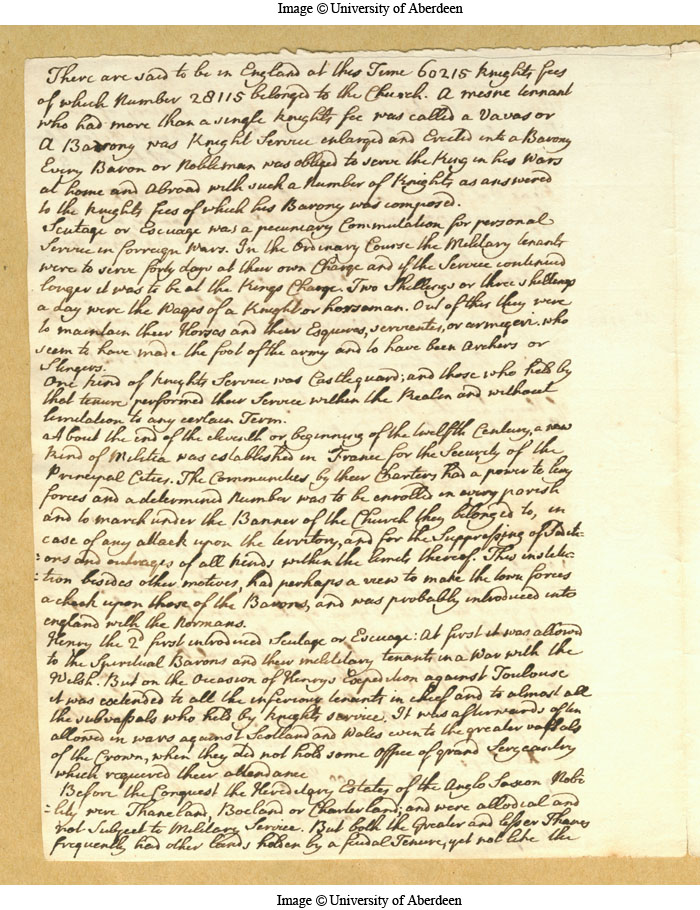 Image © University of Aberdeen
There are said to be in England at this Time 60215 Knights fees
of which Number 28115 belonged to the Church. A mesne tennant
who had more than a single Knights fee was called a Vavasor
A Barony was Knight Service enlarged and Erected into a Barony
Every Baron or Nobleman was obliged to serve the King in his Wars
at home and Abroad with such a Number of Knights as answered
to the Knights fees of which his Barony was composed.
Scutage or Escuage was a pecuniary Commutation for personal
Service in forreign Wars. In the Ordinary Course the Military tenants
were to serve forty days at their own Charge and if the Service continued
longer it was to be at the Kings Charge. Two Shillings or three shillings
a day were the Wages of a Knight or horseman. Out of this they were
to maintain their Horses and their Esquires, servientes, or armigeri who
seem to have made the foot of the army and to have been Archers or
Slingers.
One kind of Knights Service was Castleguard; and those who held by
that tenure performed their Service within the Realm and without
limitation to any certain Term.
About the end of the eleventh or beginning of the twelfth Century, a new
kind of Militia was established in France for the Security of the
Principal Cities. The Communities by their Charters had a power to levy
forces and a determined Number was to be enrolled in every parish
and to march under the Banner of the Church they belonged to, in
case of any attack upon the territory, and for the Suppressing of Sediti-
=ons and outrages of all kinds within the limits thereof. This institu-
=tion besides other motives, had perhaps a view to make the town forces
a check upon those of the Barons, and was probably introduced into
england with the Normans.
Henry the 2d first introduced Scutage or Escuage: At first it was allowed
to the Spiritual Barons and their melitary tenants in a War with the
Welsh. But on the Occasion of Henrys Expedition against Toulouse
it was extended to all the inferious tenants in chief and to almost all
the subvassals who held by Knights service. It was afterwards often
allowed in wars against Scotland and Wales even to the greater vassals
of the Crown, when they did not hold some Office of grand Sergeantry
which required their attendance
Before the Conquest the Hereditary Estates of the Anglo Saxon Nobi
=lity were Thaneland, Bocland or Charterland; and were allodial and
not Subject to Military Service. But both the Greater and lesser Thanes
frequently had other lands holden by a feudal Tenure, yet not like the
Image © University of Aberdeen